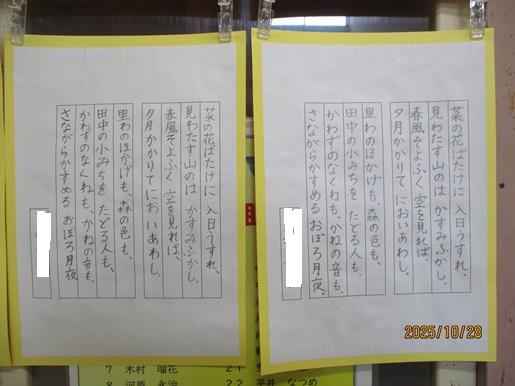 菜の花ばたけに 入日うすれ、
見わたす山のは かすみふかし。
春風そよふく 空を見れば、
夕月かかりて においあわし。
里わのほかげも、森の色も、
田中の小みちを たどる人も、
かわずのなくねも、かねの音も、
さながらかすめる おぼろ月夜
菜の花ばたけに 入日うすれ、
見わたす山のは かすみふかし。
春風そよふく 空を見れば、
夕月かかりて においあわし。
里わのほかげも、森の色も、
田中の小みちを たどる人も、
かわずのなくねも、かねの音も、
さながらかすめる おぼろ月夜。
7 木村 瑠花 21
8 河原 永治 22 平井 なつめ
2025/10/28